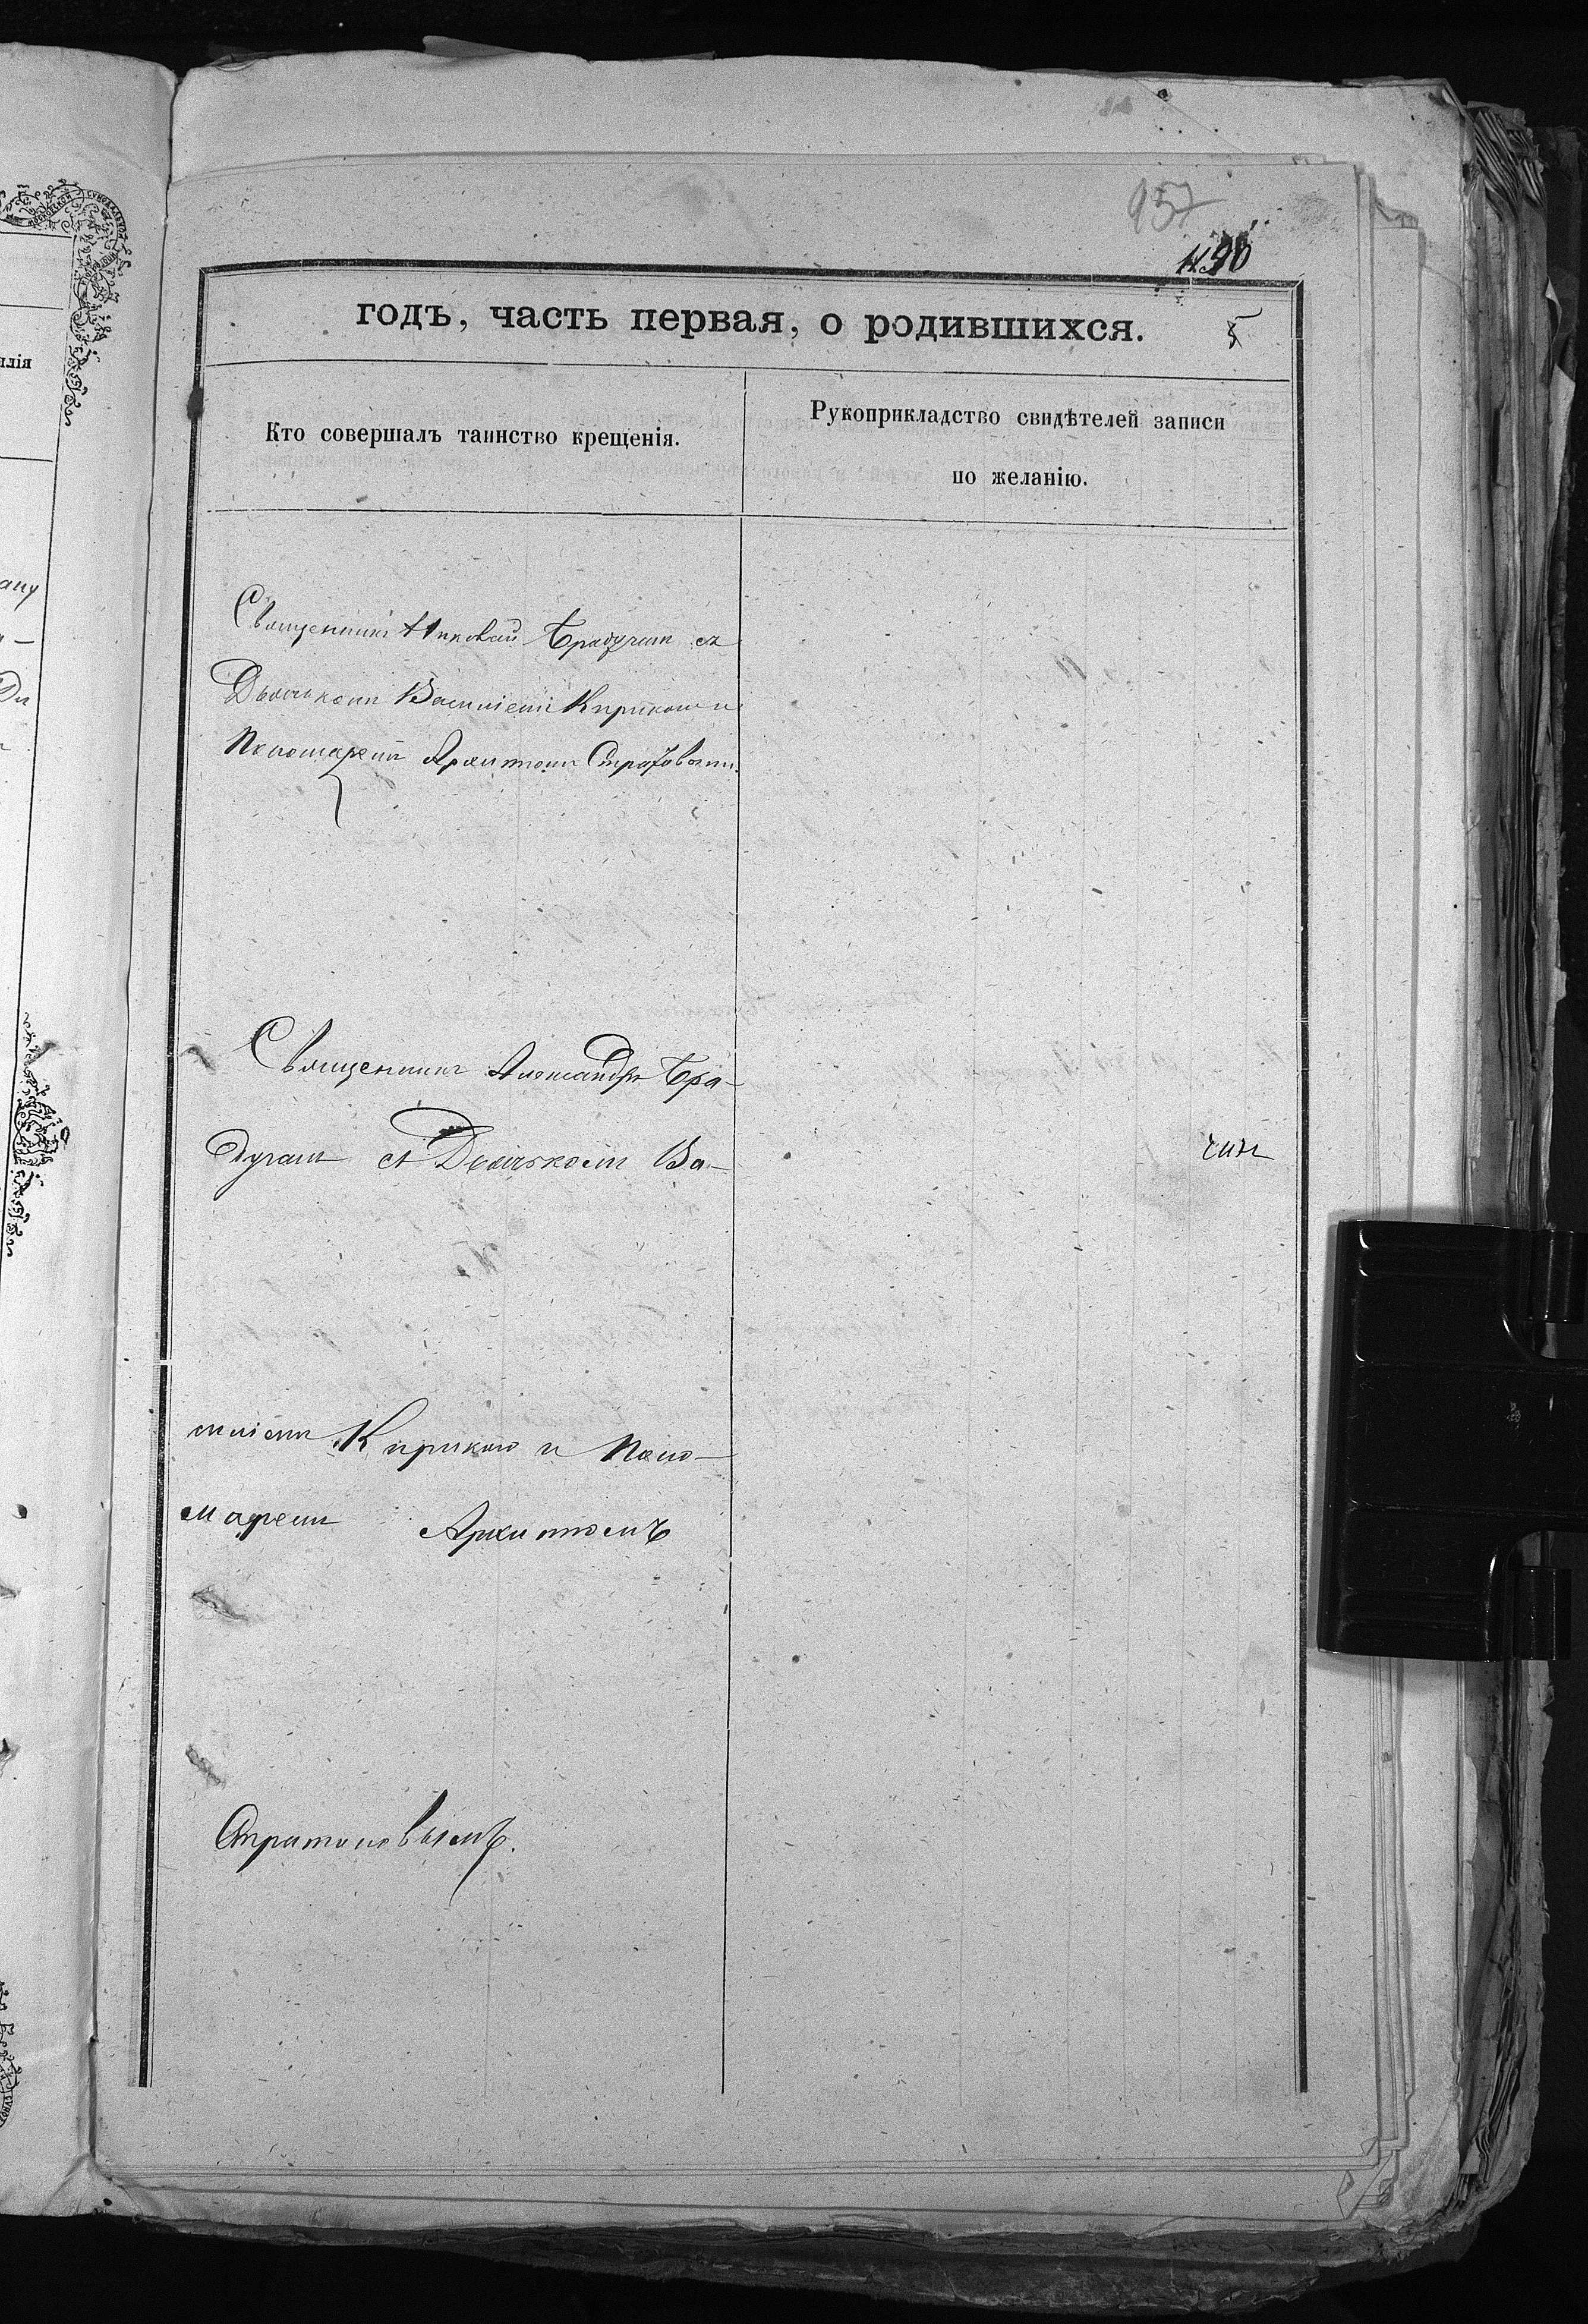 957
490
годъ, часть первая, о родившихся.
5
Кто совершалъ таинство крещенія.
Рукоприкладство свидѣтелей записи
по желанію.
Священникъ Николай Брадучан съ
Дьячкомъ Василіемъ Кирикою и
Пономаремъ Архипомъ
Священникъ Александръ Бра-
дучан съ Дьячкомъ Ва-
силіемъ Кирикою и Поно-
маремъ Архипомъ
Стратоновымъ.